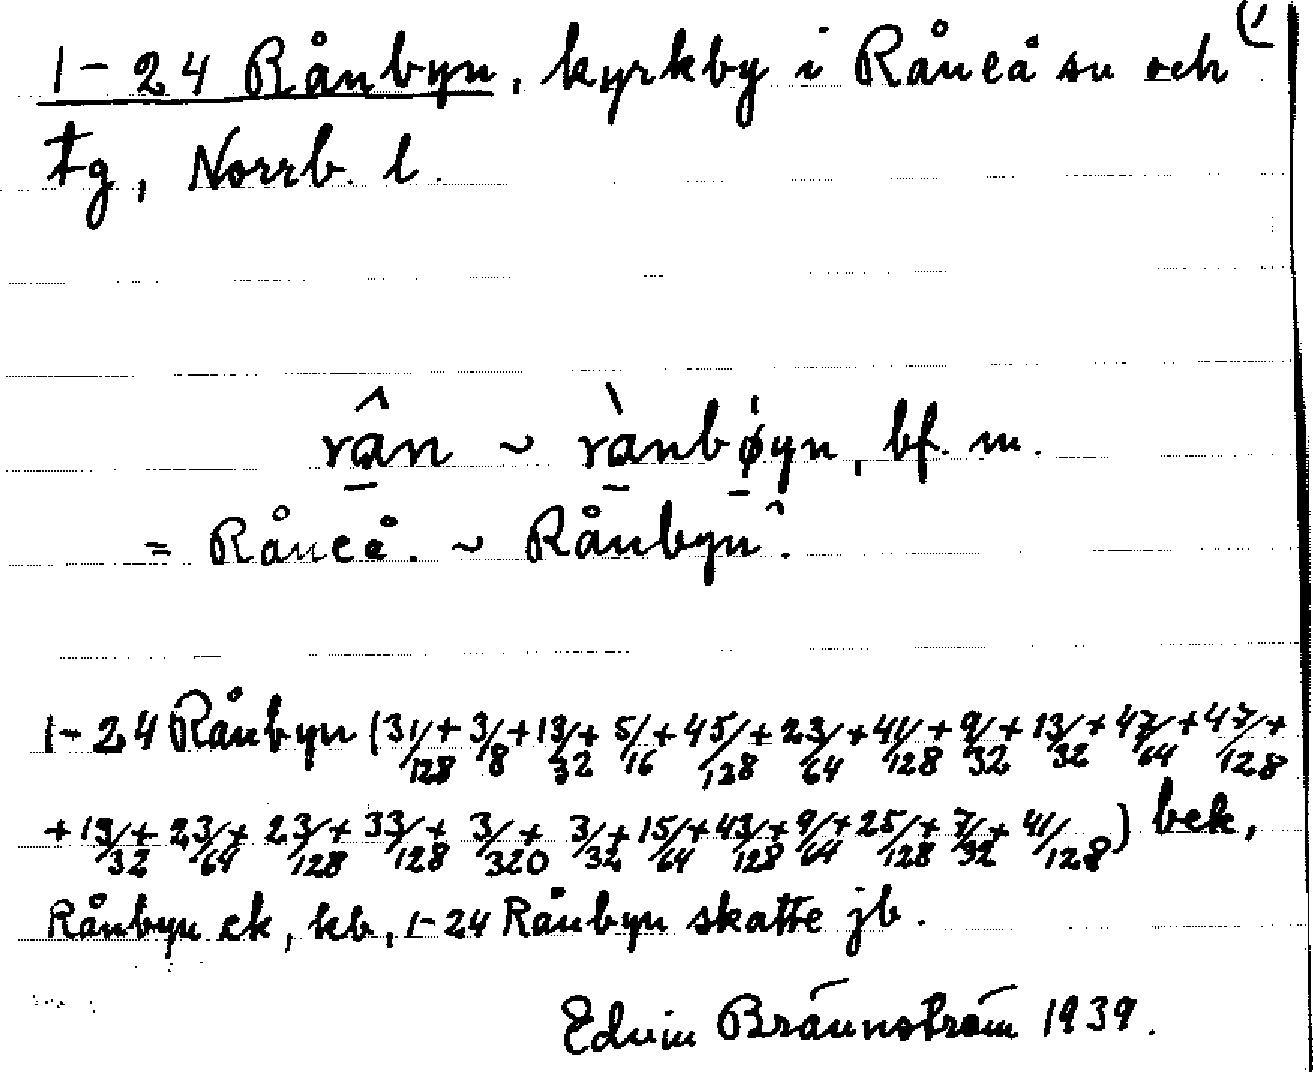 1-24 Rånbyn, kyrkby i Råneå sn och
tg, Norrb. l.
rân ~ rànbøyn, bf. m.
= Råneå. ~ Rånbyn.
1-24 Rånbyn (31/128 + 3/8 + 19/32 + 5/16 + 45/128 + 23/64 + 41/128 + 9/32 + 13/32 + 47/64 + 47/128 +
+ 19/32 + 23/64 + 23/128 + 33/128 + 3/320 + 3/32 + 15/64 + 43/128 + 9/64 + 25/128 + 7/32 + 41/128) bek,
Rånbyn ek, kb, 1-24 Rånbyn skatte jb.
Edvin Brännström 1939.